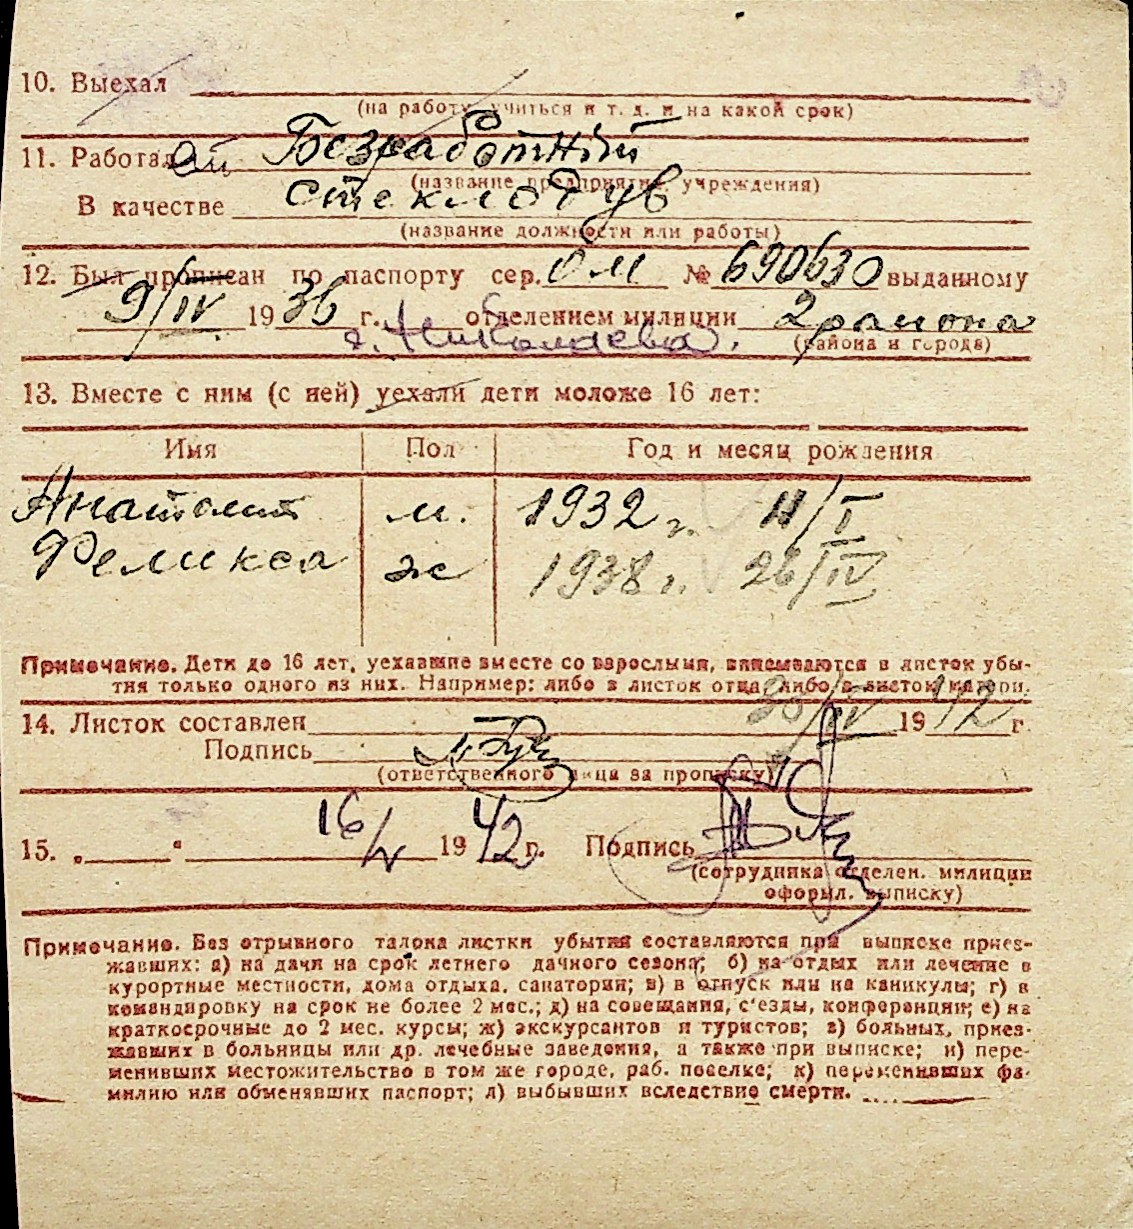 10. Выехал
(на работу, учиться и т. д. и на какой срок)
Безработный
11. Работал
(название предприятия, учреждения)
стеклодув
В качестве
(название должности или работы)
12. Был прописан по паспорту сер. ОМ № 690630 выданному
9/IV 1936 г. отделением милиции 2 района
г. Николаева.
(района и города)
13. Вместе с ним (с ней) уехали дети моложе 16 лет:
Имя Пол Год и месяц рождения
Анатолий м. 1932 г. II/I
Феликса ж 1938 г. 26/IV
Примечание. Дети до 16 лет, уехавшие вместе со взрослыми, вписываются в листок убы-
тия только одного из них. Например: либо в листок отца, либо в листок матери.
14. Листок составлен 30/IV 1942 г.
Подпись
(ответственного лица за прописку)
15. „ “ 16/V 1942 г. Подпись
(сотрудника отделен. милиции
оформл. выписку)
Примечание. Без отрывного талона листки убытия составляются при выписке приез-
жавших: а) на дачи на срок летнего дачного сезона; б) на отдых или лечение в
курортные местности, дома отдыха, санатории; в) в отпуск или на каникулы; г) в
командировку на срок не более 2 мес.; д) на совещания, с'езды, конференции; е) на
краткосрочные до 2 мес. курсы; ж) экскурсантов и туристов; з) больных, приез-
жавших в больницы или др. лечебные заведения, а также при выписке; и) пере-
менивших местожительство в том же городе, раб. поселке; к) переменивших фа-
милию или обменявших паспорт; л) выбывших вследствие смерти.